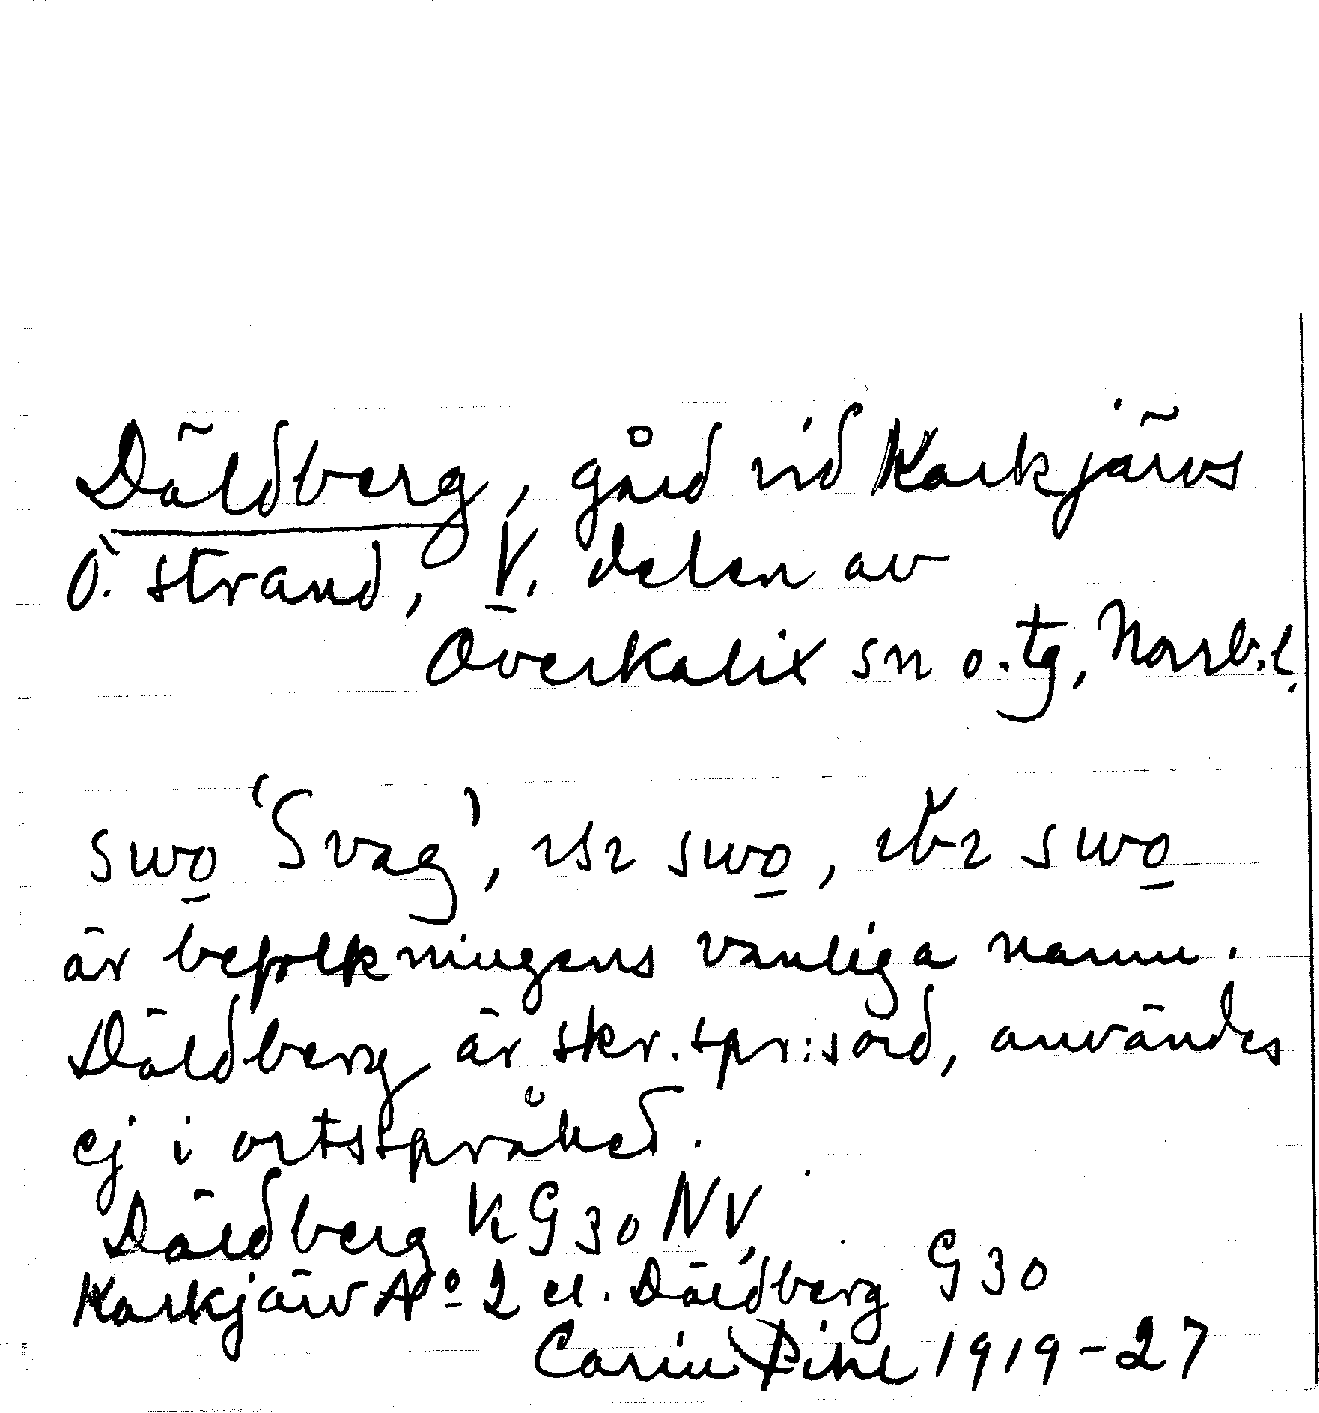 Däldberg, gård vid Karkjärvs
Ö. strand, V. delen av
Överkalix sn o. tg, Norrb. l.
swo 'Svag', swo, swo
är befolkningens vanliga namn.
Däldberg är skr.spr:sord, användes
ej i ortsspråket.
Däldberg KG 30 NV,
Karkjärv Aº 2 el. Däldberg G 30
Carin Pihl 1919-27